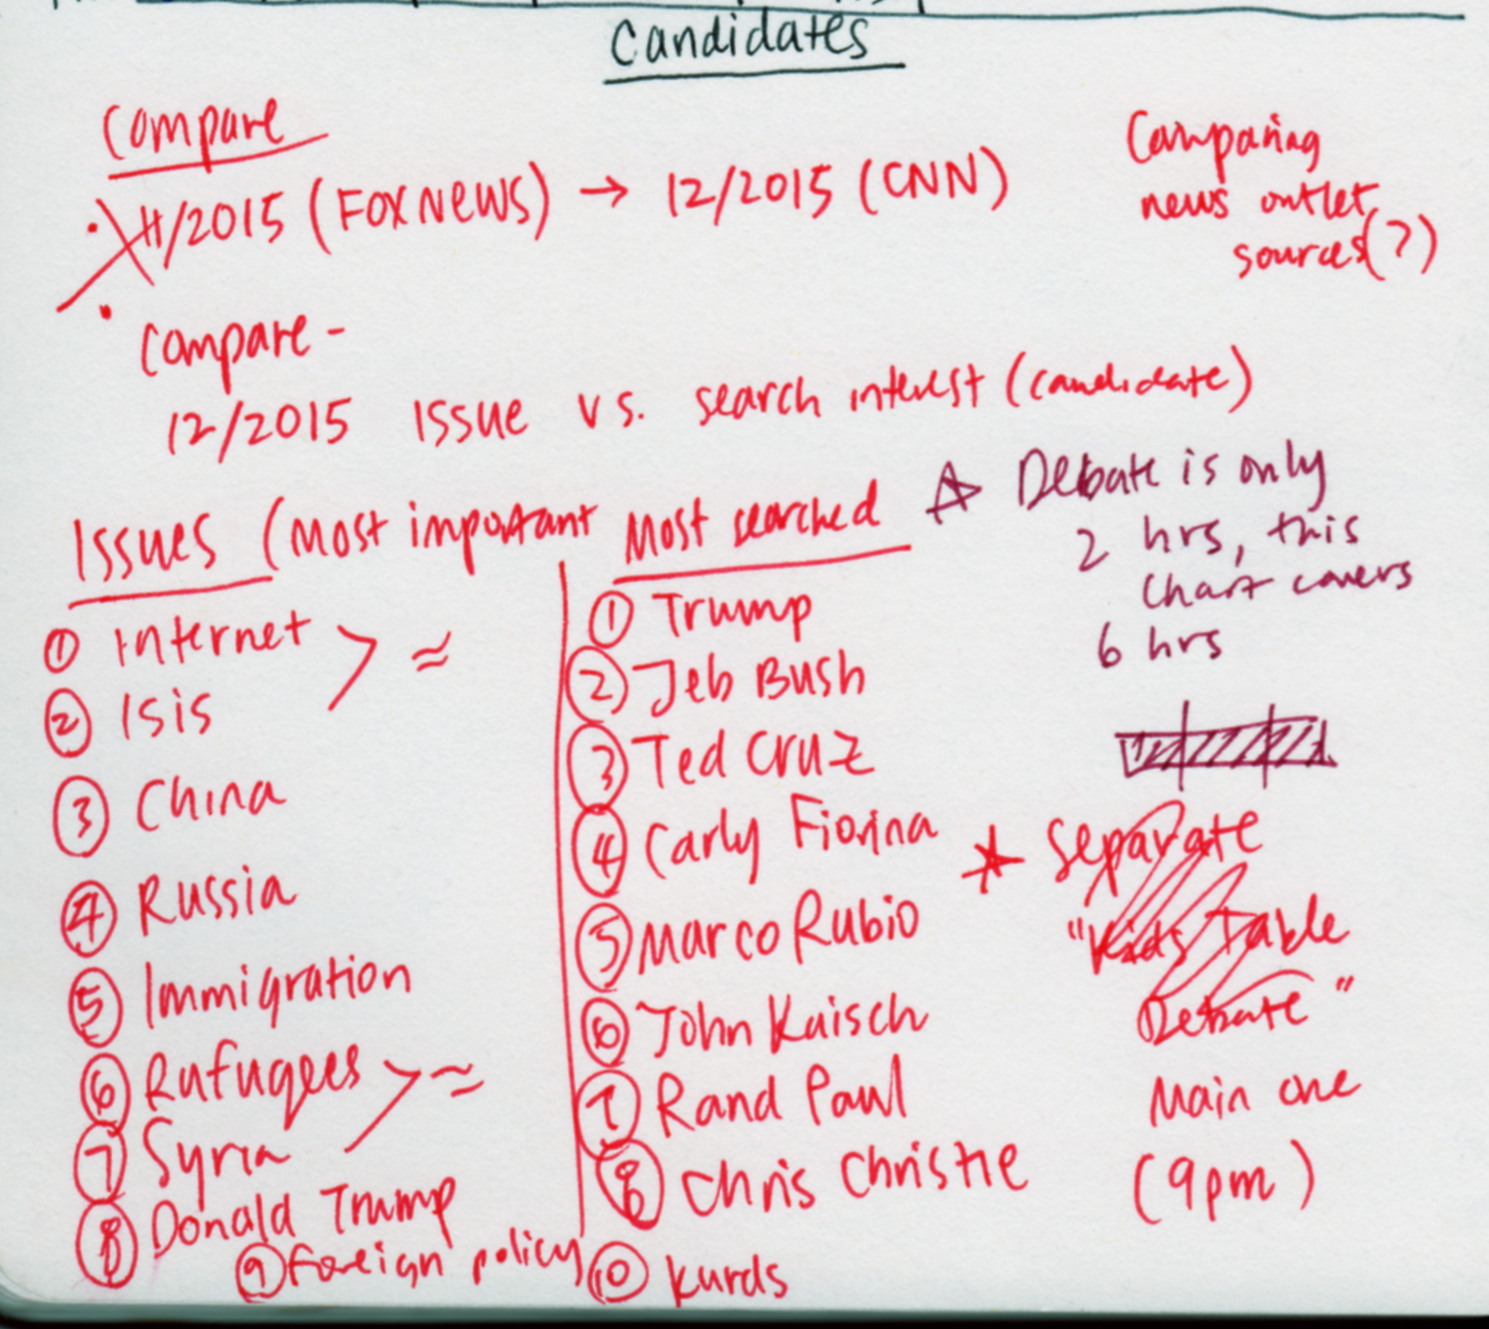 Candidates
Compare
11/2015 (FOX NEWS) → 12/2015 (CNN)
Comparing
news outlet
sources(?)
Compare -
12/2015 Issue vs. search interest (candidate)
Issues (Most important
① Internet > ≈
② Isis
③ China
④ Russia
⑤ Immigration
⑥ Rufugees > ≈
⑦ Syria
⑧ Donald Trump
⑨ Foreign policy
⑩ Kurds
Most searched
① Trump
② Jeb Bush
③ Ted Cruz
④ Carly Fiorina
⑤ Marco Rubio
⑥ John Kaisch
⑦ Rand Paul
⑧ Chris Christie
☆ Debate is only
2 hrs, this
Chart covers
6 hrs
★ Separate
"Kids Table
Debate"
Main one
(9pm)